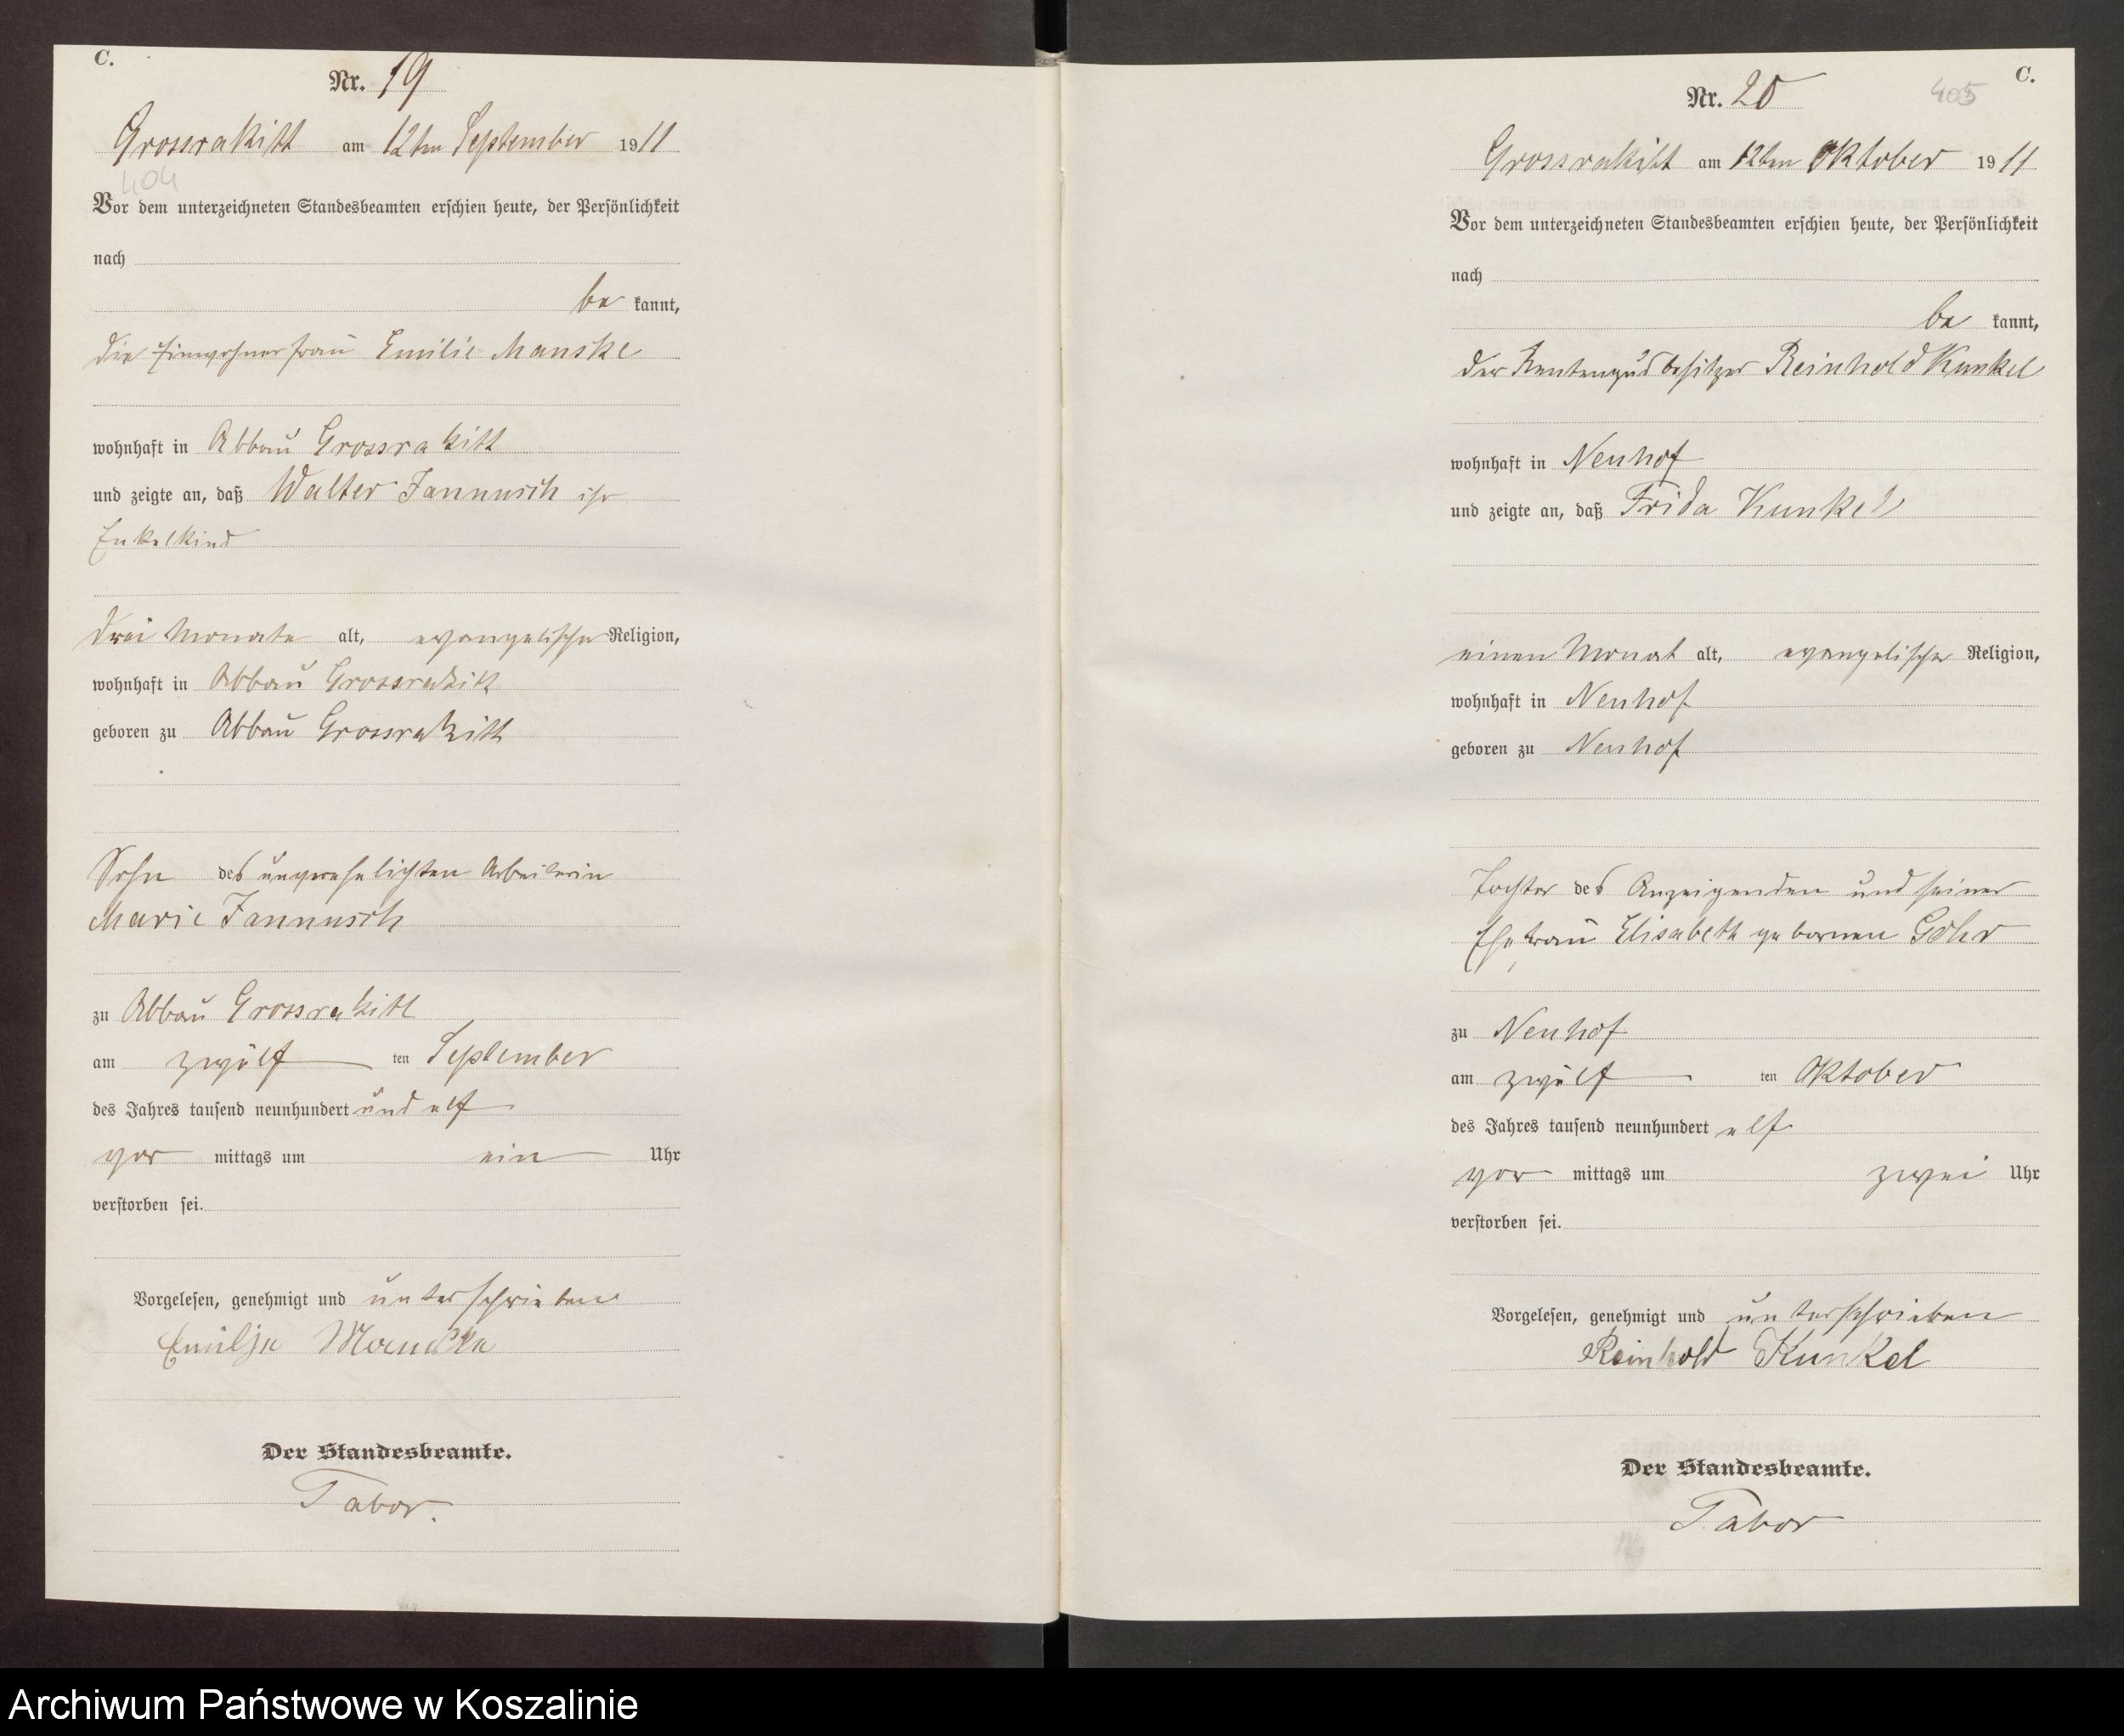 C.
Nr. 19
Grossrakitt am 12ten September 1911
404
Vor dem unterzeichneten Standesbeamten erschien heute, der Persönlichkeit
nach
be kannt,
die Einwohnerfrau Emilie Manske
wohnhaft in Abbau Grossrakitt
und zeigte an, daß Walter Jannusch ihr
Enkelkind
drei Monate alt, evangelischer Religion,
wohnhaft in Abbau Grossrakitt
geboren zu Abbau Grossrakitt
Sohn der unverehelichten Arbeiterin
Marie Jannusch
zu Abbau Grossrakitt
am zwölf ten September
des Jahres tausend neunhundert und elf
vor mittags um ein Uhr
verstorben sei.
Vorgelesen, genehmigt und unterschrieben
Emilje Manske
Der Standesbeamte.
Tabor.
C.
Nr. 20
405
Grossrakitt am 12ten Oktober 1911
Vor dem unterzeichneten Standesbeamten erschien heute, der Persönlichkeit
nach
be kannt,
der Rentengutsbesitzer Reinhold Kunkel
wohnhaft in Neuhof
und zeigte an, daß Frida Kunkel
einen Monat alt, evangelischer Religion,
wohnhaft in Neuhof
geboren zu Neuhof
Tochter des Anzeigenden und seiner
Ehefrau Elisabeth gebornen Göhr
zu Neuhof
am zwölf ten Oktober
des Jahres tausend neunhundert elf
vor mittags um zwei Uhr
verstorben sei.
Vorgelesen, genehmigt und unterschrieben
Reinhold Kunkel
Der Standesbeamte.
Tabor
Archiwum Państwowe w Koszalinie